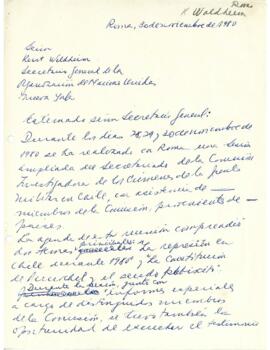 K Waldheim
Roma, 30 de noviembre de 1980
Señor
Kurt Waldheim
Secretario General de la
Organización de Naciones Unidas
Nueva York
Estimado señor Secretario General:
Durante los días 28, 29 y 30 de noviembre de
1980 se ha realizado en Roma una Sesión
ampliada del Secretariado de la Comisión
Investigadora de los Crímenes de la Junta
Militar en Chile, con asistencia de
miembros de la Comisión, procedentes de
países.
La agenda de esta reunión comprendió
dos temas principales: La represión en
Chile durante 1980 y La Constitución
de Pinochet y el seudo plebiscito.
Durante la sesión, junto con
informes especiales
a cargo de distinguidos miembros
de la Comisión, se tuvo también la
oportunidad de escuchar el testimonio